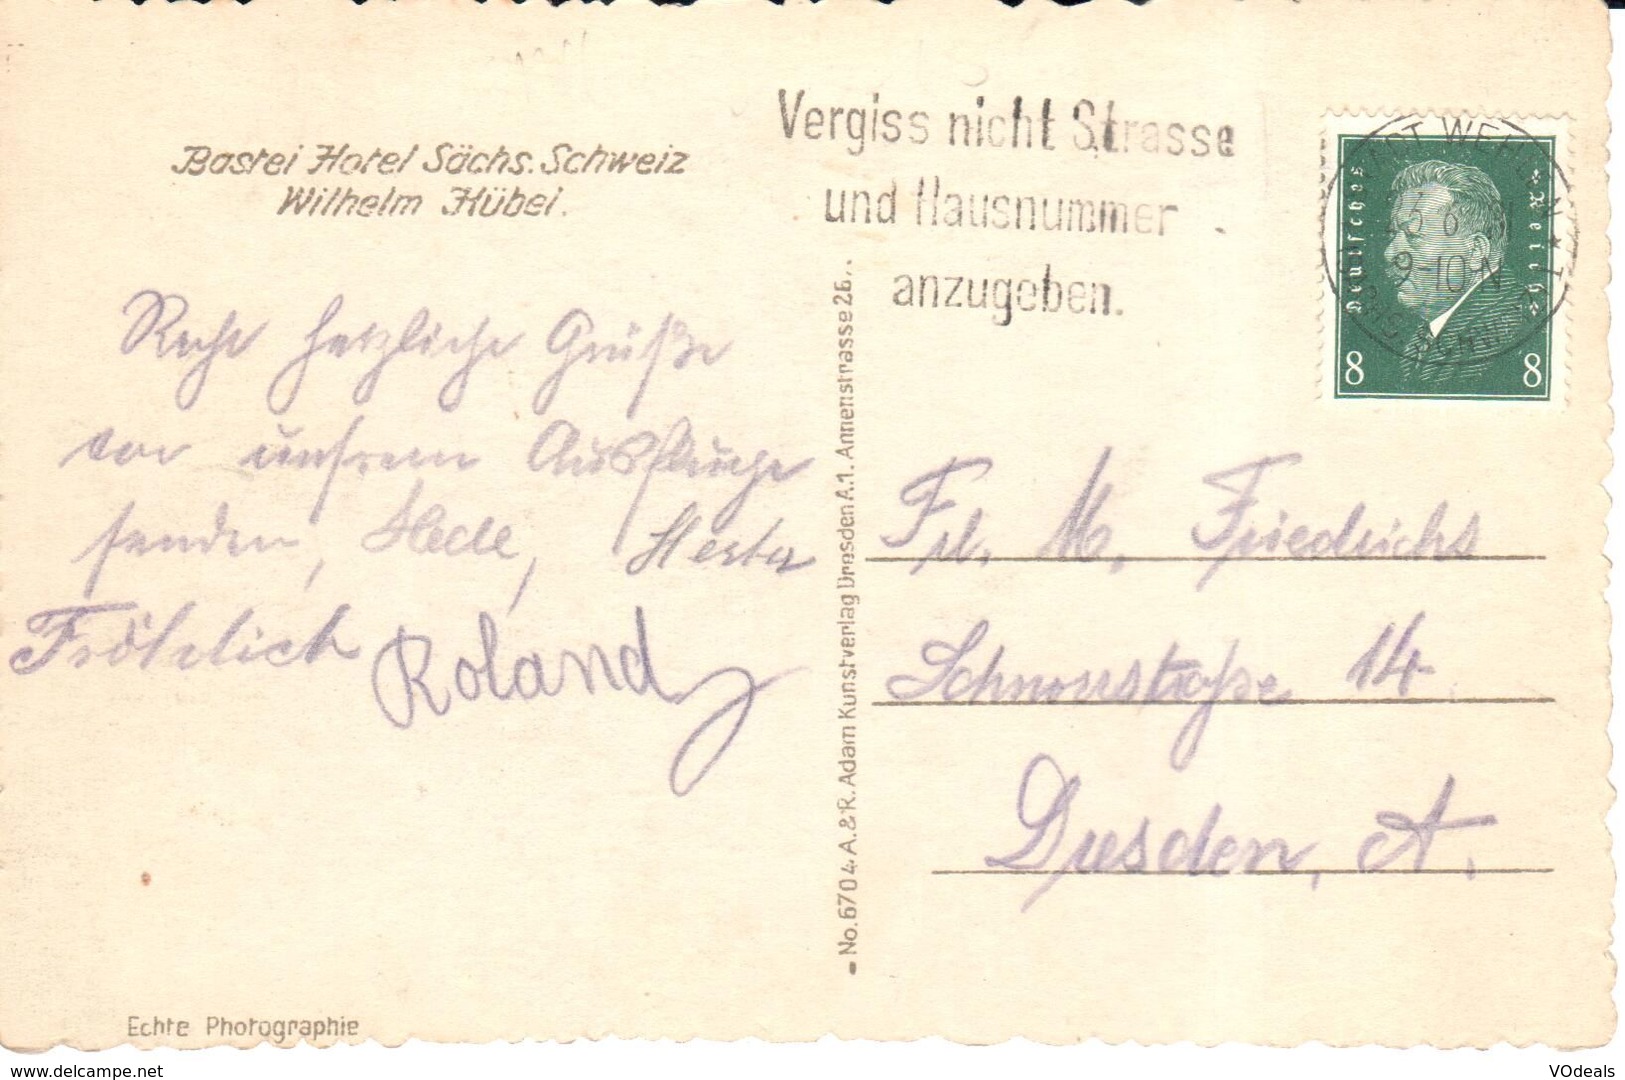 Bastei Hotel Sächs. Schweiz
Wilhelm Hübel.
Recht herzliche Grüße
von unsrem Ausfluge
senden, Hede, Herta
Fröhlich Roland
Echte Photographie
No. 6704 A. & R. Adam Kunstverlag Dresden A.1. Annenstrasse 26.
Vergiss nicht Strasse
und Hausnummer
anzugeben.
Deutsches Reich
8 8
9-10 N
Frl. M. Friedrichs
14
Dresden, A.
delcampe.net
VOdeals